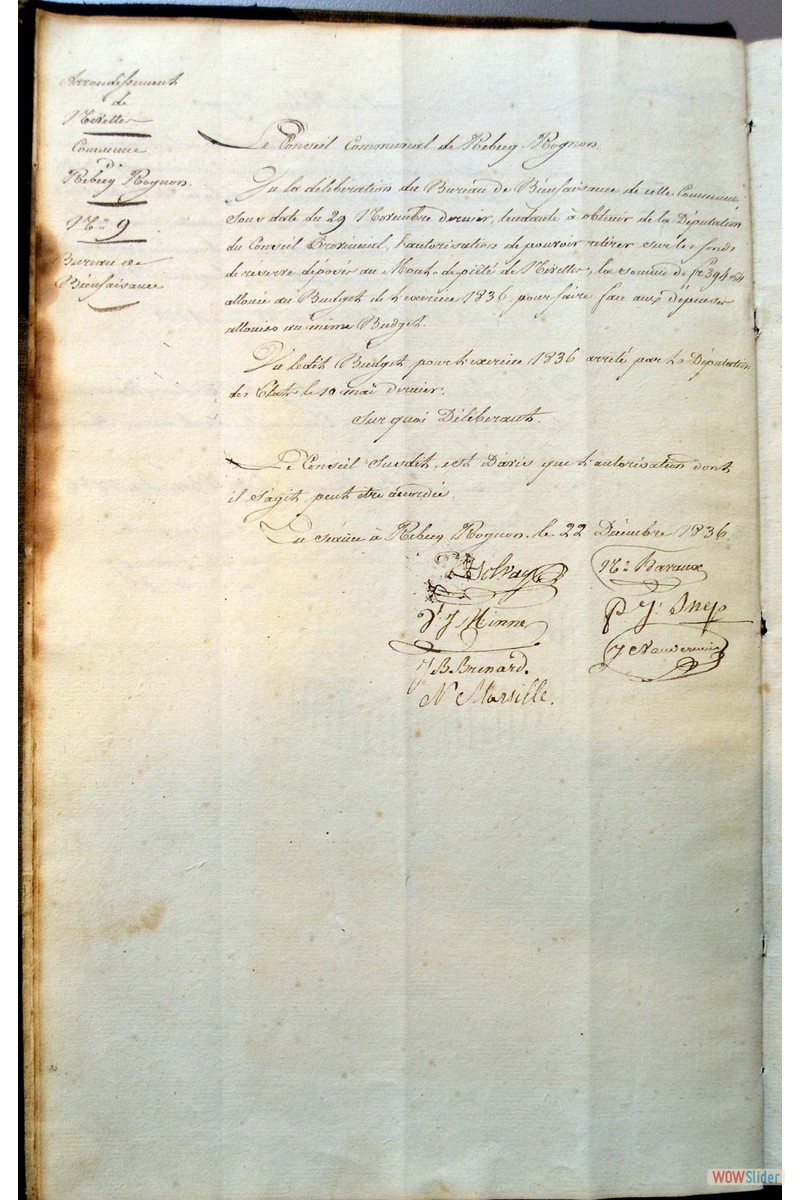 Arrondissement
de
Nivelles
Commune
de
Rebecq Rognon.
N° 9
Bureau de
Bienfaisance
Le Conseil Communal de Rebecq Rognon.
Vu la délibération du Bureau de Bienfaisance de cette Commune
sous date du 29 Novembre dernier, tendante à obtenir de la Députation
du Conseil Provincial, l'autorisation de pouvoir retirer sur les fonds
de réserve déposés au Mont de piété de Nivelles, la somme de fr 394
allouée au Budget de l'exercice 1836, pour faire face aux dépenses
allouées au même Budget.
Vu ledit Budget pour l'exercice 1836 arrêté par la Députation
des Etats le 10 mai dernier.
Sur quoi Délibérant.
Le Conseil Susdit, est D'avis que l'autorisation dont
il s'agit peut etre accordée.
En séance à Rebecq Rognon, le 22 Décembre 1836.
Solvay
J Minne
J B Brenard.
N Marsille.
WOWSlider